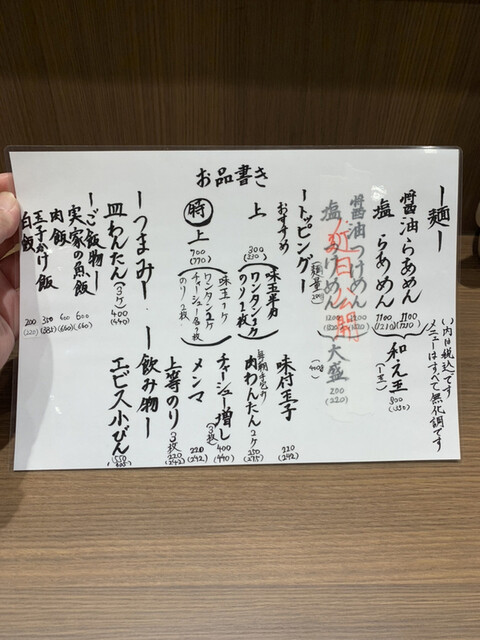 お品書き
()内は税込です
メニューはすべて無化調です
ー麺ー
醤油らあめん 1100 (1210)
塩らあめん 1100 (1210)
和え玉 (1玉) 800 (880)
醤油つけめん 1200
塩つけめん 1200
近日公開
(麺量200g)
大盛 200 (220)
ートッピングー
おすすめ
上 300 (330) (味玉半分 ワンタン1ヶ のり1枚)
特上 700 (770) (味玉1ヶ ワンタン2ヶ チャーシュー各2枚 のり2枚)
味付玉子 220 (242)
肉わんたん 2ヶ 250 (275)
チャーシュー増し (3枚) 400 (440)
メンマ 220 (242)
上等のり 3枚 220 (242)
ーつまみー
皿わんたん (3ヶ) 400 (440)
ー飲み物ー
エビス小びん 550
ーご飯物ー
実家の魚飯 600 (660)
肉飯 600 (660)
玉子かけ飯
白飯 200 (220)